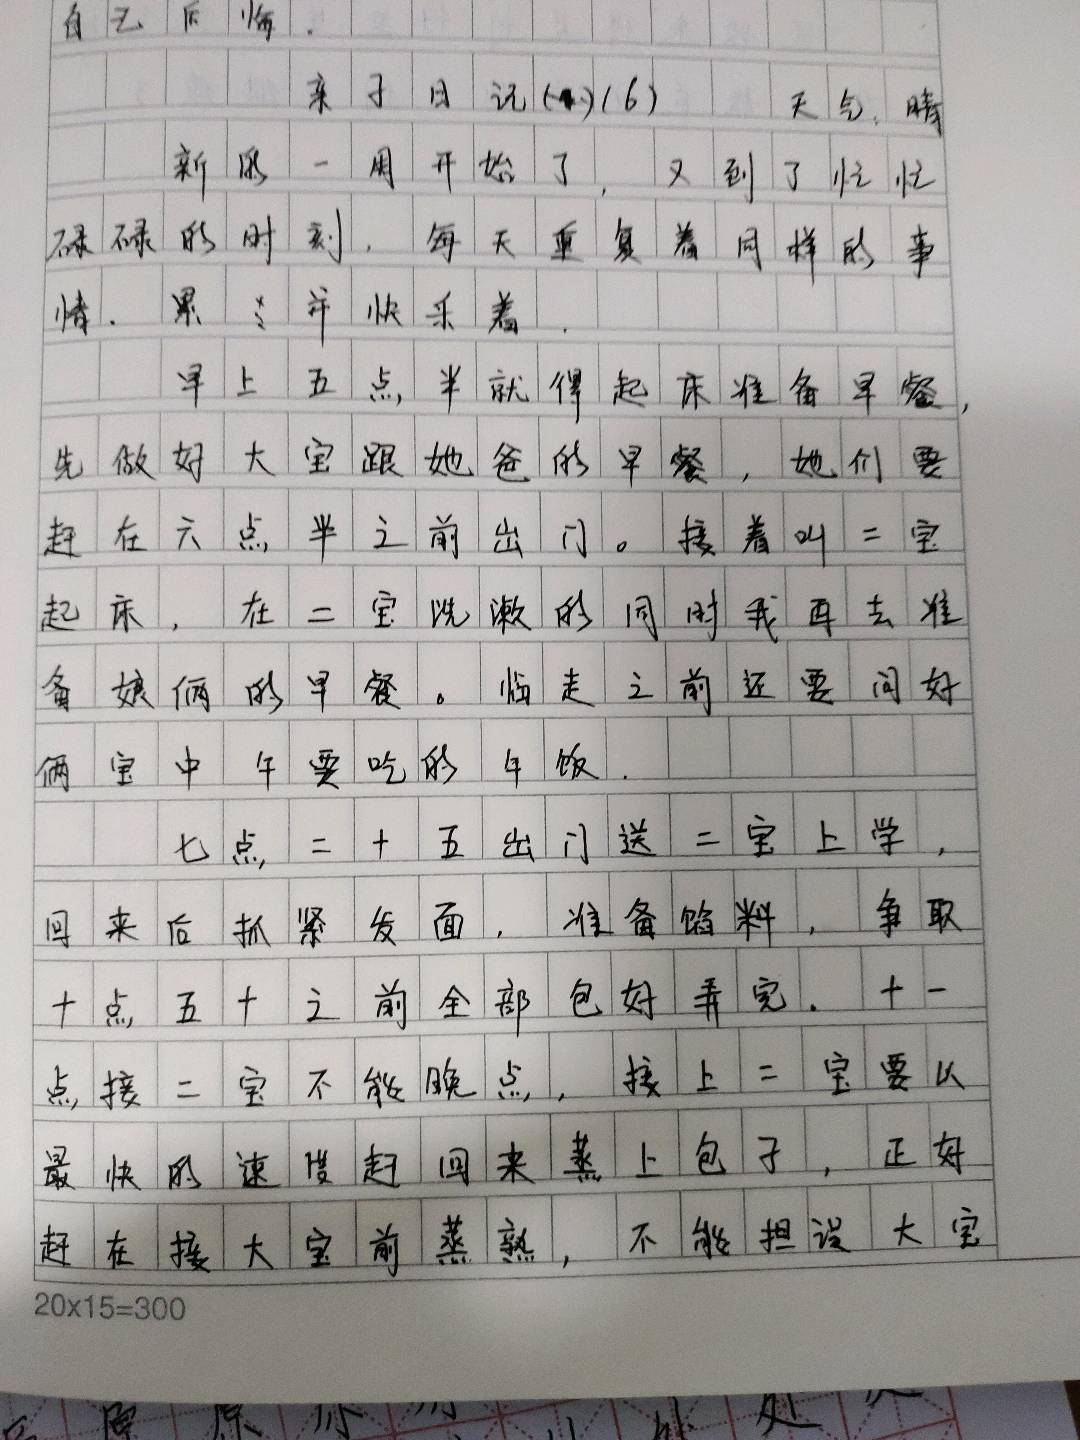 自己后悔.
亲子日记(6) 天气:晴
新的一周开始了,又到了忙忙
碌碌的时刻,每天重复着同样的事
情.累并快乐着.
早上五点半就得起床准备早餐,
先做好大宝跟她爸的早餐,她们要
赶在六点半之前出门。接着叫二宝
起床,在二宝洗漱的同时我再去准
备娘俩的早餐。临走之前还要问好
俩宝中午要吃的午饭.
七点二十五出门送二宝上学,
回来后抓紧发面,准备馅料,争取
十点五十之前全部包好弄完.十一
点接二宝不能晚点,接上二宝要以
最快的速度赶回来蒸上包子,正好
赶在接大宝前蒸熟,不能担误大宝
20x15=300